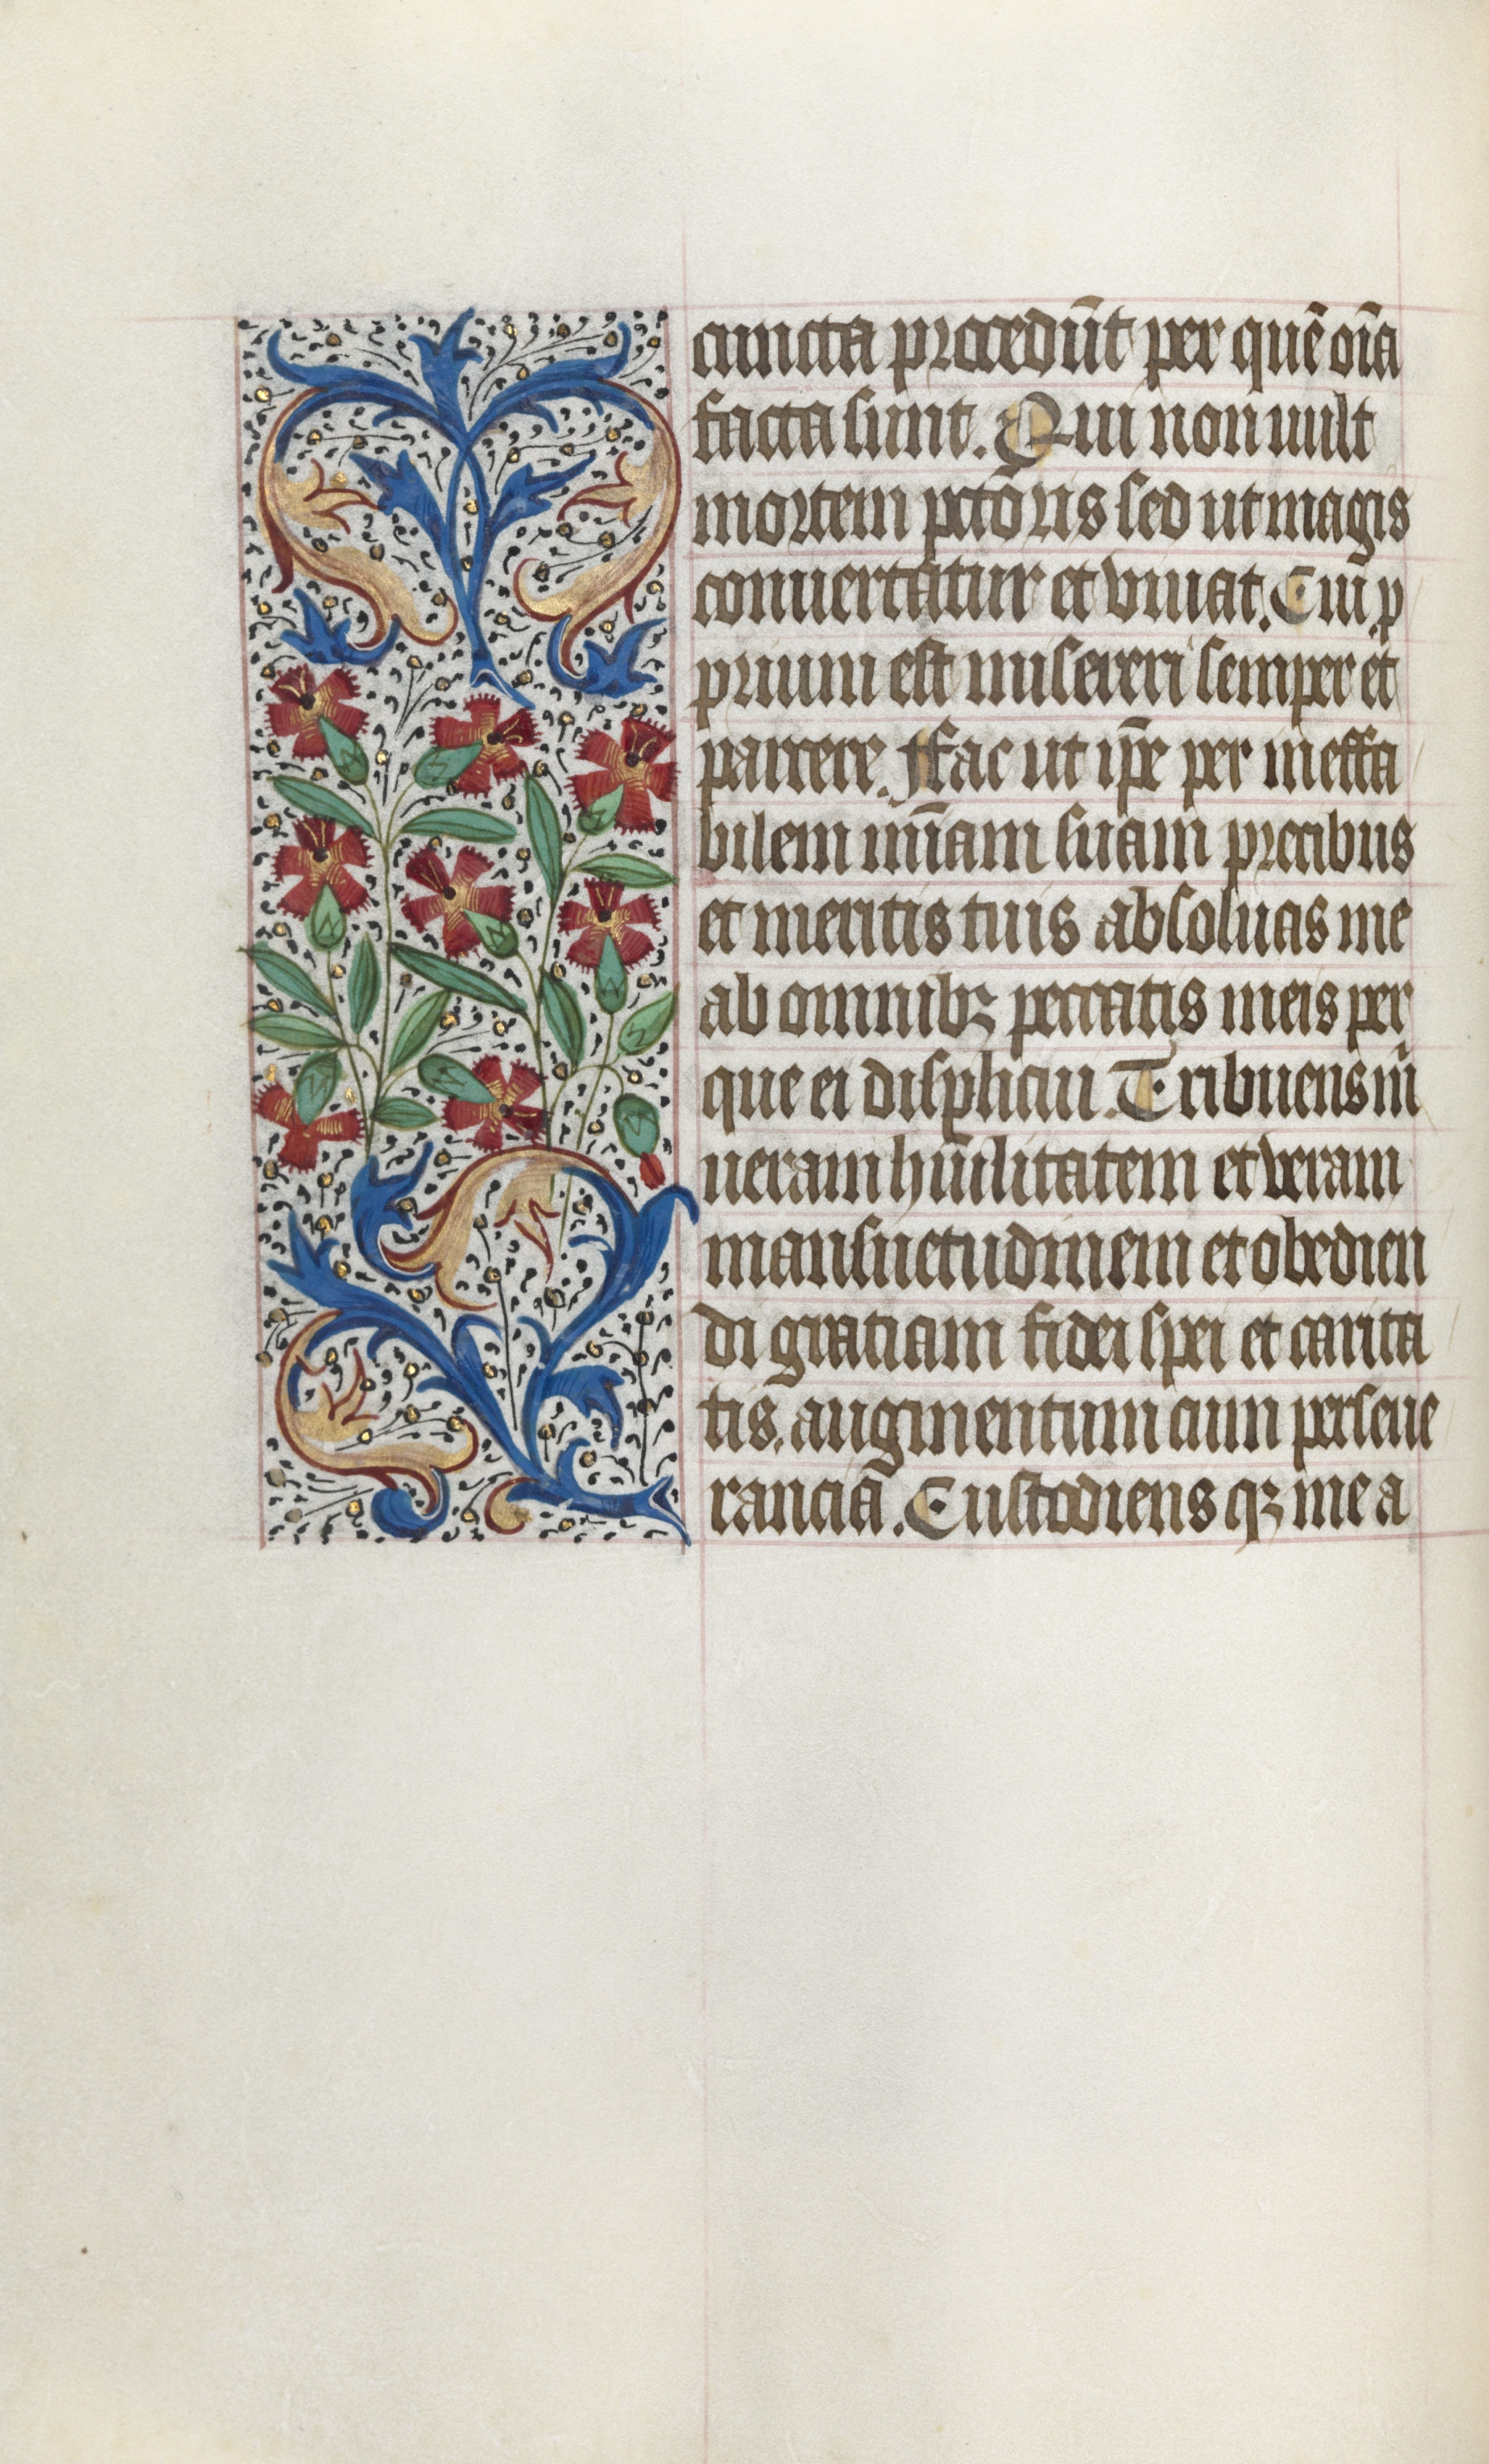 cuncta procedūt per quē oīa
facta sunt. Qui non uult
mortem pctōris sed ut magis
conuertatur et viuat. Cui p
prium est misereri semper et
parcere. Fac ut ip̄e per ineffa
bilem mīam suam precibus
et meritis tuis absoluas me
ab omnibꝫ peccatis meis per
que ei displicui. Tribuens m̄
ueram hūilitatem et veram
mansuetudinem et obedien
di gratiam fidei spei et carita
tis, augmentum cum perseue
ranciā. Custodiens qꝫ me a